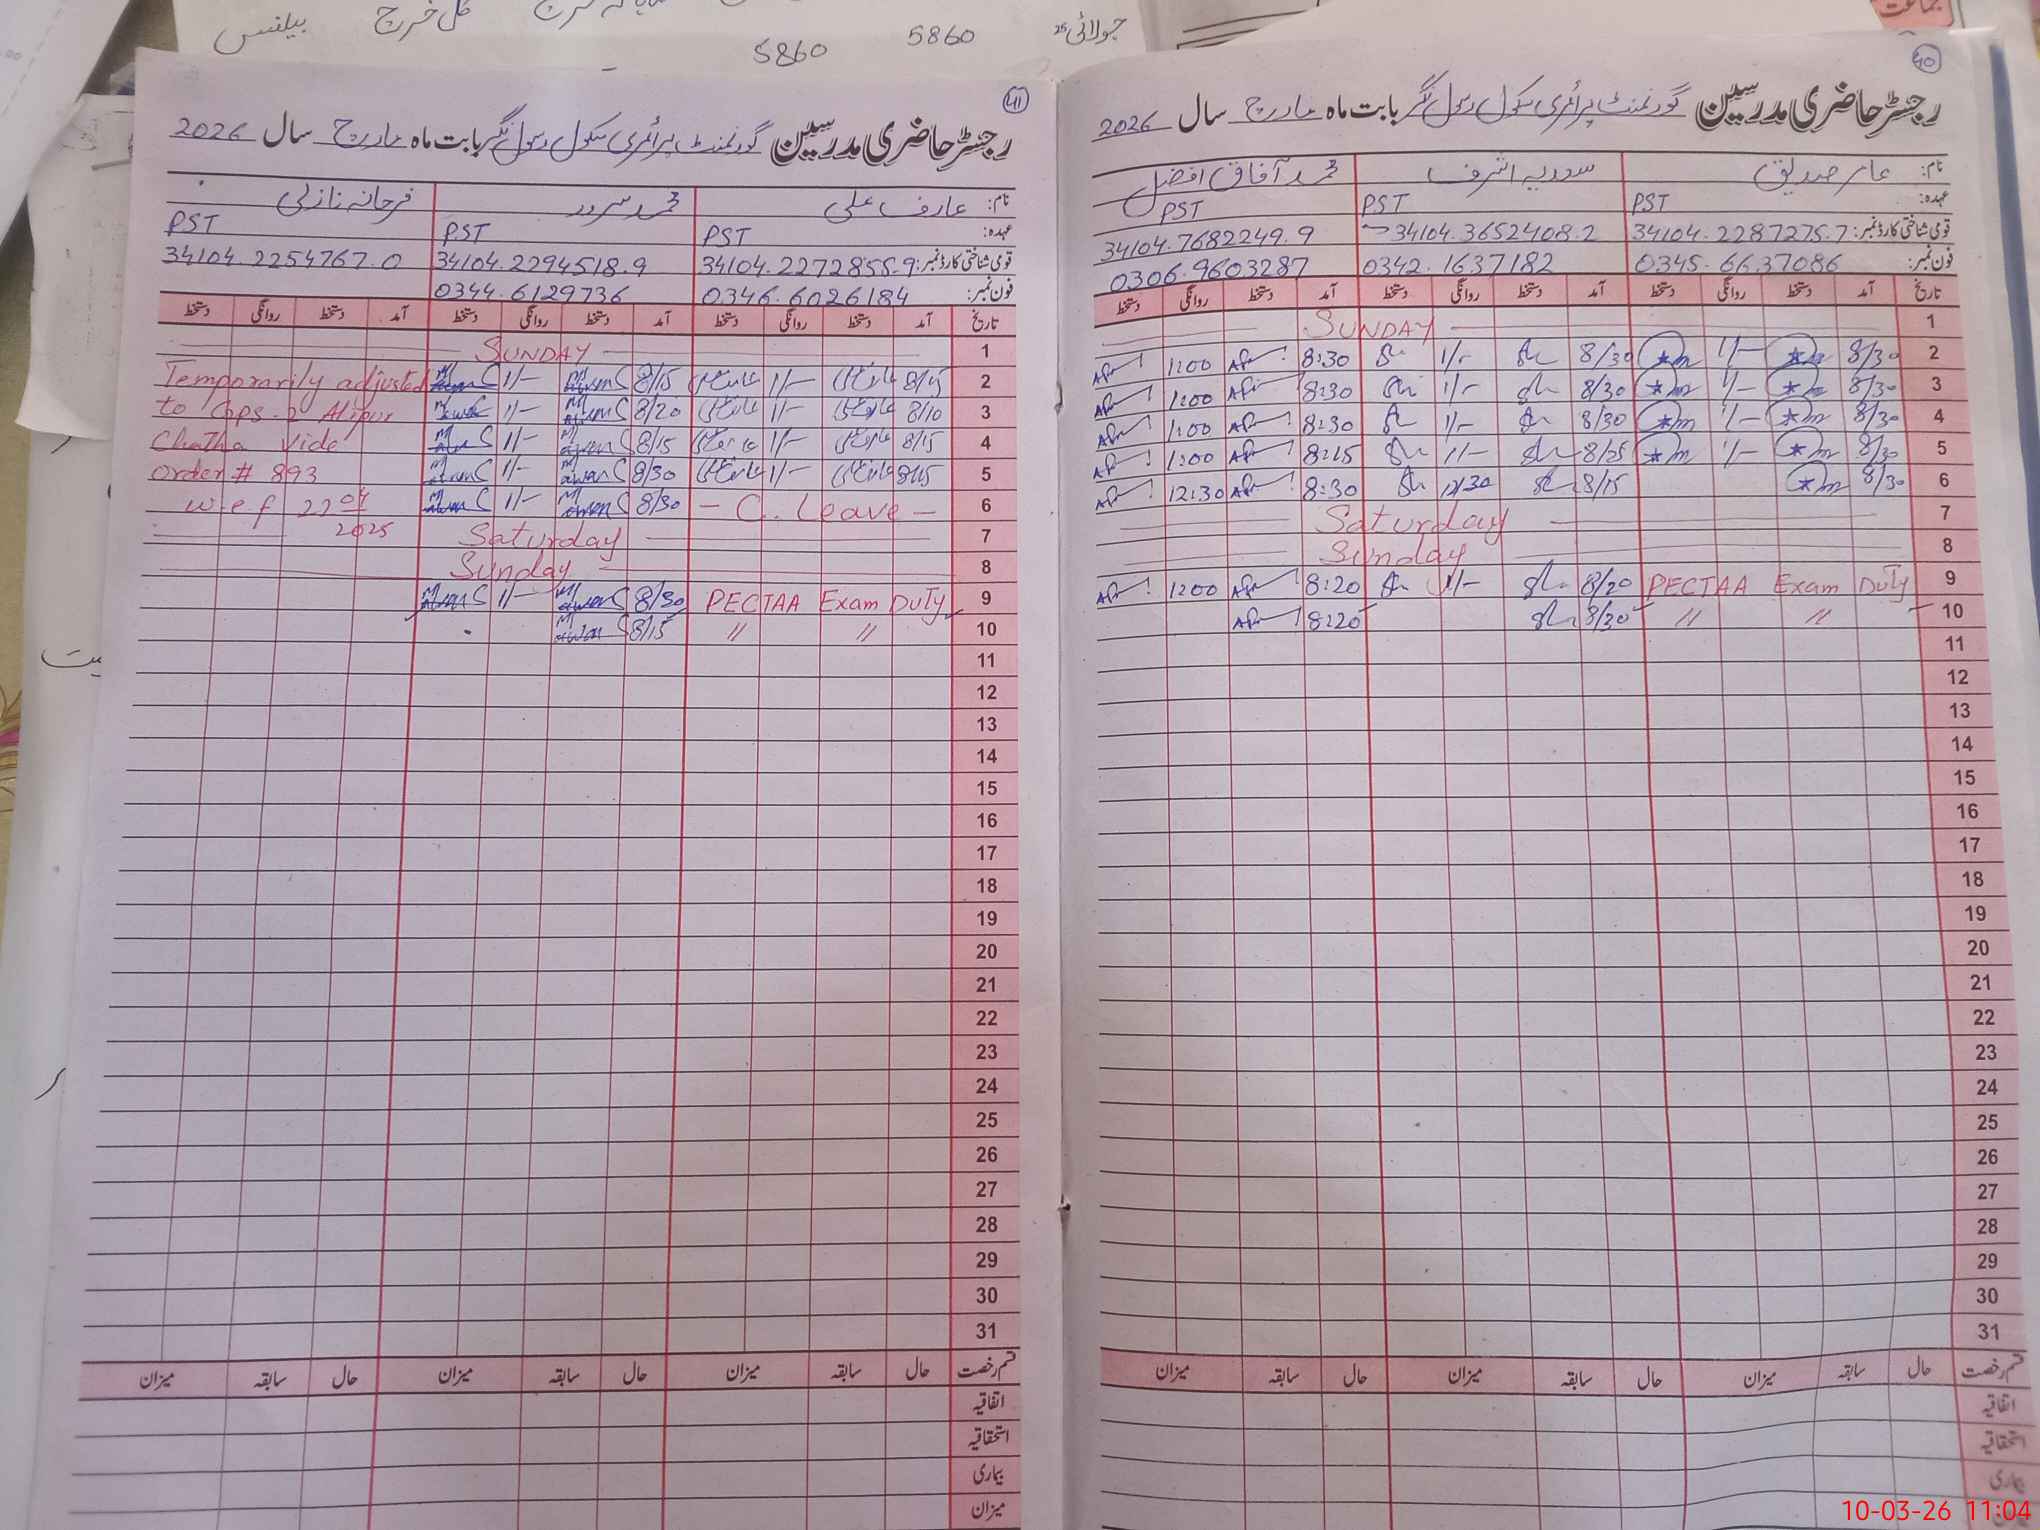 بیلنس کل خرچ
5860 5860 جولائی 25
40
رجسٹر حاضری مدرسین گورنمنٹ پرائمری سکول رسول نگر بابت ماہ مارچ سال 2026
نام: عامر صدیق سعدیہ اشرف محمد آفاق افضل
عہدہ: PST PST PST
قومی شناختی کارڈ نمبر: 34104.2287275.7 34104.3652408.2 34104.7682249.9
فون نمبر: 0345.6637086 0342.1637182 0306.9603287
تاریخ آمد دستخط روانگی دستخط آمد دستخط روانگی دستخط آمد دستخط روانگی دستخط
1 SUNDAY
2 8/30 1/- 8/30 1/- 8:30 1:00
3 8/30 1/- 8/30 1/- 8:30 1:00
4 8/30 1/- 8/30 1/- 8:30 1:00
5 8/30 1/- 8/25 1/- 8:15 1:00
6 8/30 8/15 12/30 8:30 12:30
7 Saturday
8 Sunday
9 PECTAA Exam Duty 8/20 1/- 8:20 1:00
10 〃 〃 8/20 8:20
11
12
13
14
15
16
17
18
19
20
21
22
23
24
25
26
27
28
29
30
31
قسم رخصت حال سابقہ میزان حال سابقہ میزان حال سابقہ میزان
اتفاقیہ
استحقاقیہ
بیماری
41
رجسٹر حاضری مدرسین گورنمنٹ پرائمری سکول رسول نگر بابت ماہ مارچ سال 2026
نام: عارف علی محمد سرور فرحانہ نازلی
عہدہ: PST PST PST
قومی شناختی کارڈ نمبر: 34104.2272855.9 34104.2294518.9 34104.2254767.0
فون نمبر: 0346.6026184 0344.6129736
تاریخ آمد دستخط روانگی دستخط آمد دستخط روانگی دستخط آمد دستخط روانگی دستخط
1 SUNDAY
2 8/15 1/- 8/15 1/- Temporarily adjusted
3 8/10 1/- 8/20 1/- to Gps-2 Alipur
4 8/15 1/- 8/15 1/- Chatha Vide
5 8/15 1/- 8/30 1/- order # 893
6 - C. Leave - 8/30 1/- w-e-f 22 04
7 Saturday 2025
8 Sunday
9 PECTAA Exam Duty 8/30 1/-
10 〃 〃 8/15
11
12
13
14
15
16
17
18
19
20
21
22
23
24
25
26
27
28
29
30
31
قسم رخصت حال سابقہ میزان حال سابقہ میزان حال سابقہ میزان
اتفاقیہ
استحقاقیہ
بیماری
میزان
10-03-26 11:04